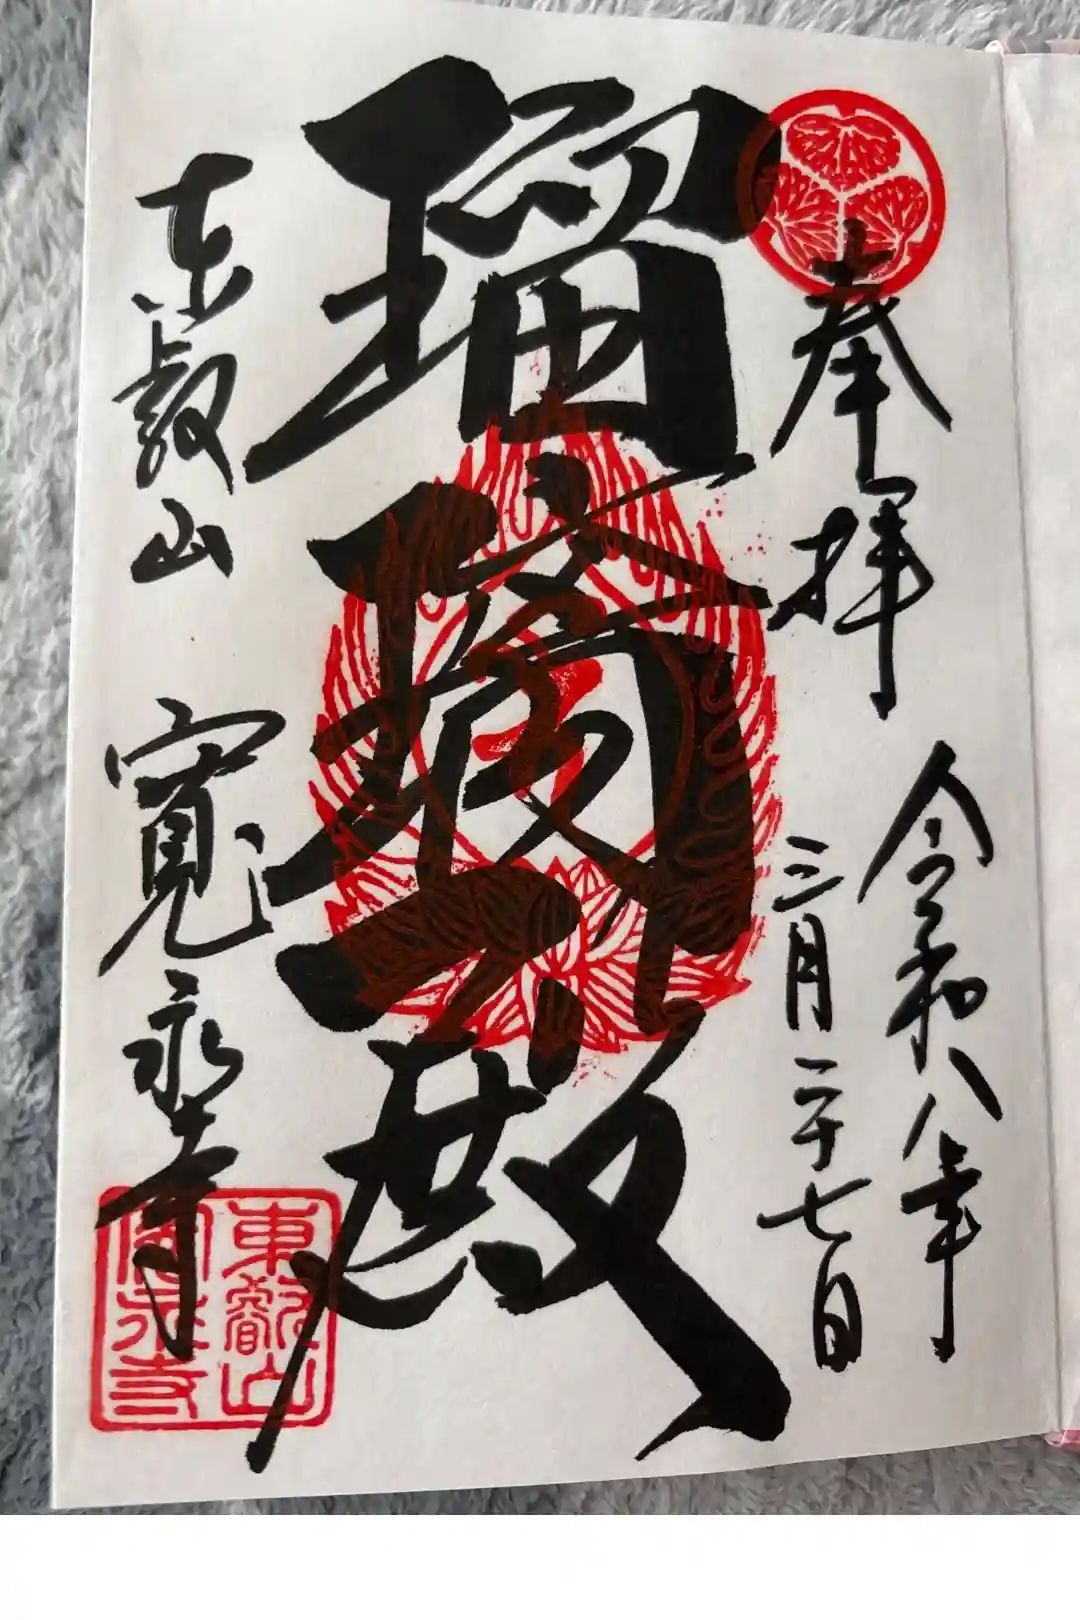 奉拝
令和八年
三月二十七日
瑠璃殿
東叡山 寛永寺
東叡山
寛永寺